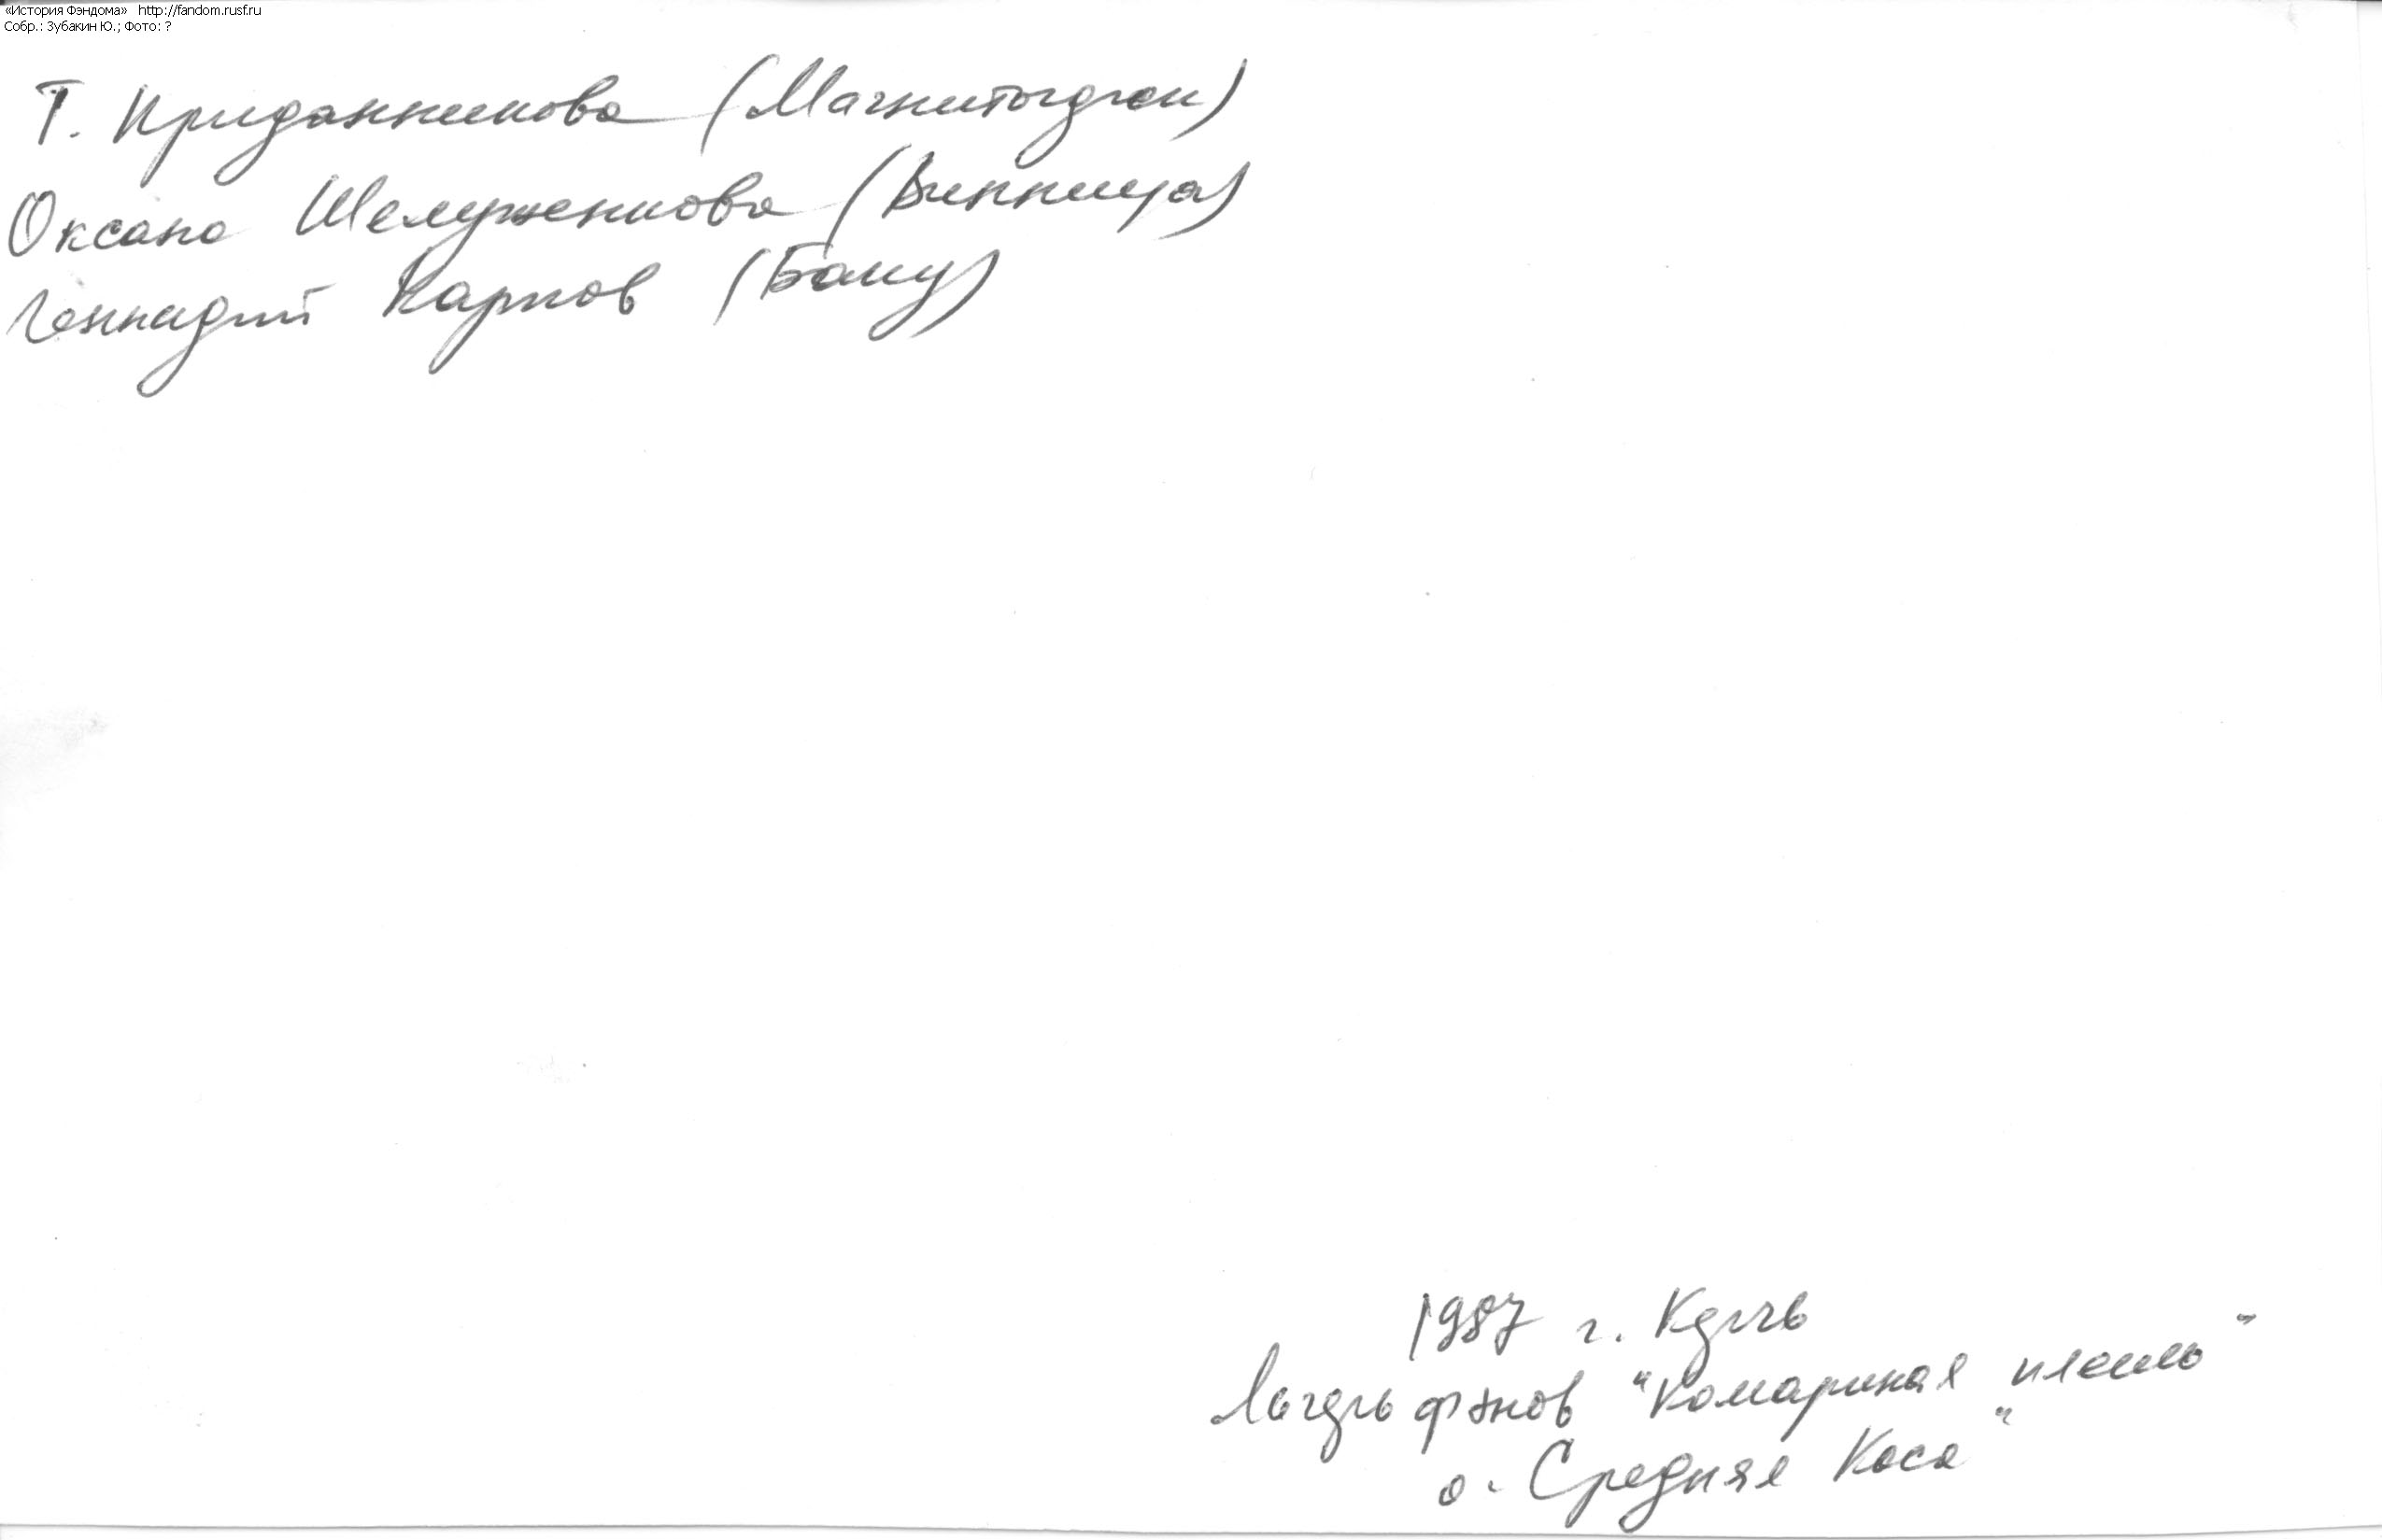 «История Фэндома» http://fandom.rusf.ru
Собр.: Зубакин Ю.; Фото: ?
Т. Приданникова (Магнитогорск)
Оксана Шелуженкова (Винница)
Геннадий Карпов (Баку)
1987 г. Керчь
Лагерь фэнов "Комариная плешь"
о. Средняя Коса"